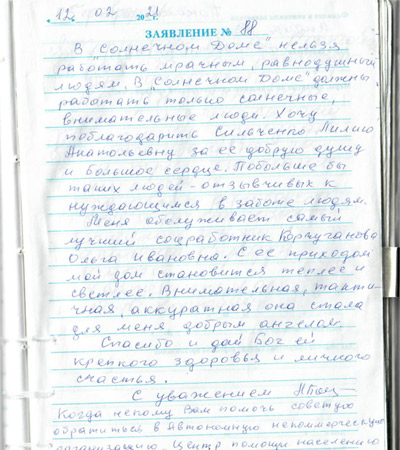 12. 02 2021 г.
ЗАЯВЛЕНИЕ № 88
В "Солнечном Доме" нельзя
работать мрачным, равнодушным
людям. В "Солнечном Доме" должны
работать только солнечные,
внимательные люди. Хочу
поблагодарить Сильченко Лилию
Анатольевну за её добрую душу
и большое сердце. Побольше бы
таких людей - отзывчивых к
нуждающимся в заботе людям.
Меня обслуживает самый
лучший соцработник Корчуганова
Ольга Ивановна. С её приходом
мой дом становится теплее и
светлее. Внимательная, такти-
чная, аккуратная она стала
для меня добрым ангелом.
Спасибо и дай Бог ей
крепкого здоровья и личного
счастья.
С уважением
Когда некому Вам помочь советую
обратиться в Автономную некоммерческую
организацию Центр помощи населению